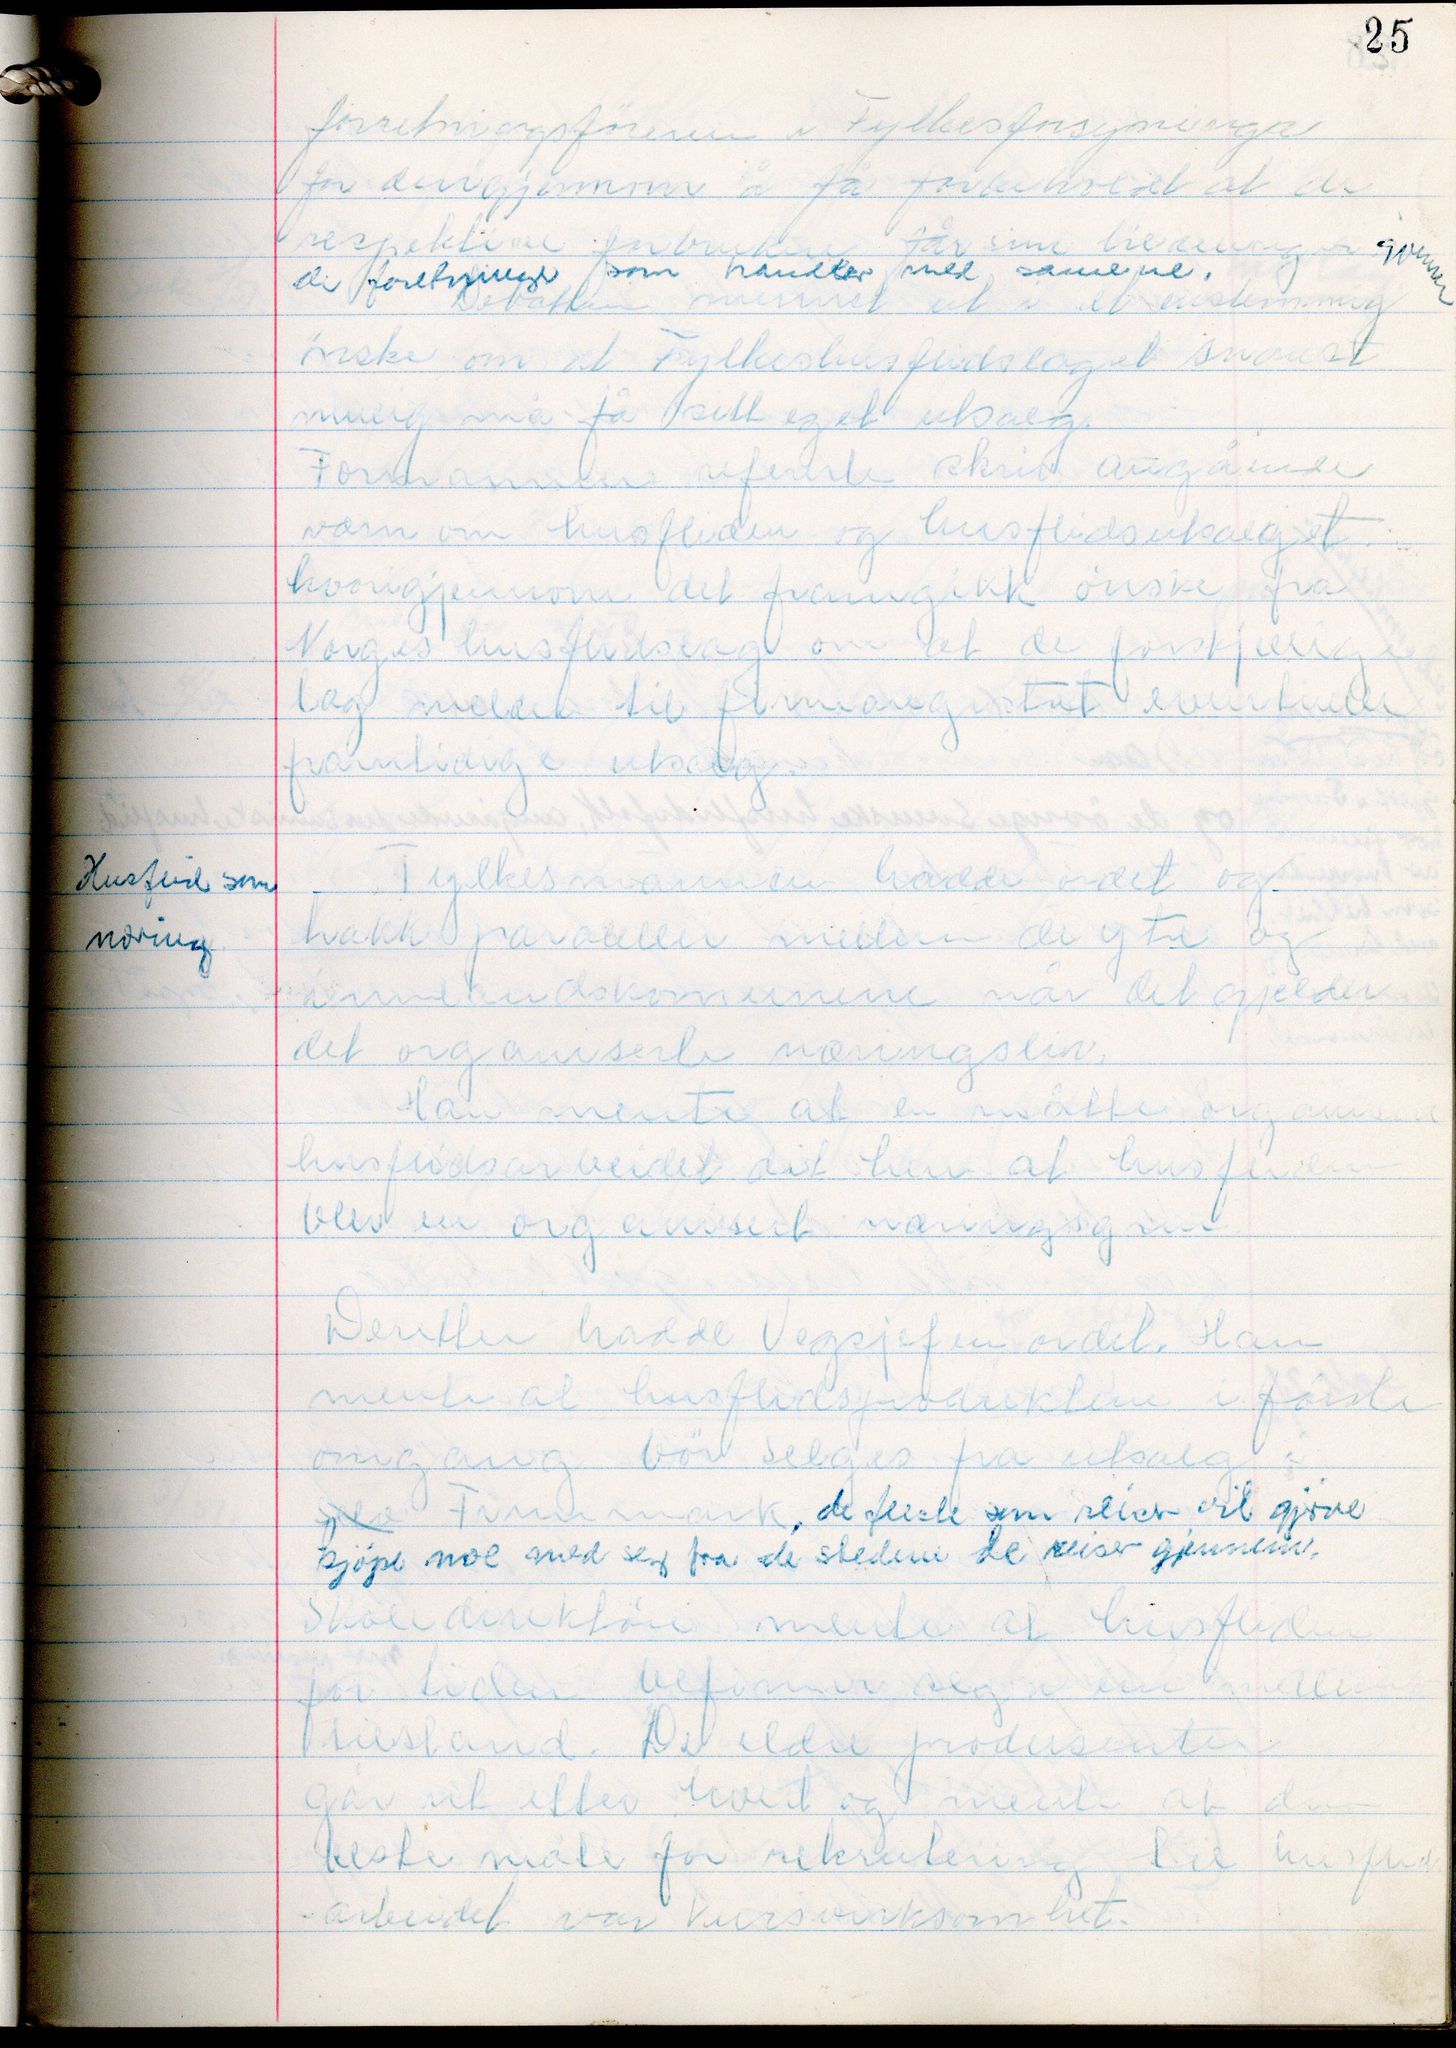 25
forretningsföreren i Fylkesforsyninga
for derigjennom å få forbeholdt at de
respektive forbrukere får sine tildelinger gjennem
de foretninger som handler med samene.
Debatten munnet ut i et enstemmig
önske om at Fylkeshusflidslaget snarest
mulig må få sitt eget utsalg.
Formannen refererte skriv angående
værn om husfliden og husflidsutsalget
hvorigjennom det framgikk önske fra
Norges husflidslag om at de forskjellige
lag melder til firmaregistret eventuelle
framtidige utsalg.
Husflid som
næring
Fylkesmannen hadde ordet og
trakk paraleller mellem de ytre og
innlandskomunene når det gjelder
det organiserte næringsliv.
Han mente at en måtte organisere
husflidsarbeidet dit hen at husfliden
blev en organisert næringsgren
Deretter hadde Vegsjefen ordet. Han
mente at husflidsproduktene i förste
omgang bör selges fra utsalg i
Finnmark, de fleste som reiser vil gjerne
kjöpe noe med seg fra de stedene de reiser gjennem.
Skoledirektören mente at husfliden
for tiden befinner seg i en mellem
tilstand. De eldre produsenter
går ut etter hvert og mente at den
beste måte for rekrutering til husflids
arbeidet var kursvirksomhet.